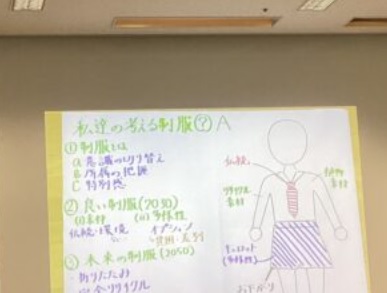 私達の考える制服? A
① 制服とは
a 意識の切り替え
B 所属の把握
C 特別感
② 良い制服(2030)
(i)素材 (ii)多様性
伝統・環境 オプション
貧困・差別
③ 未来の制服(2050)
折りたたみ
完全リサイクル
伝統
素材
(多様性)